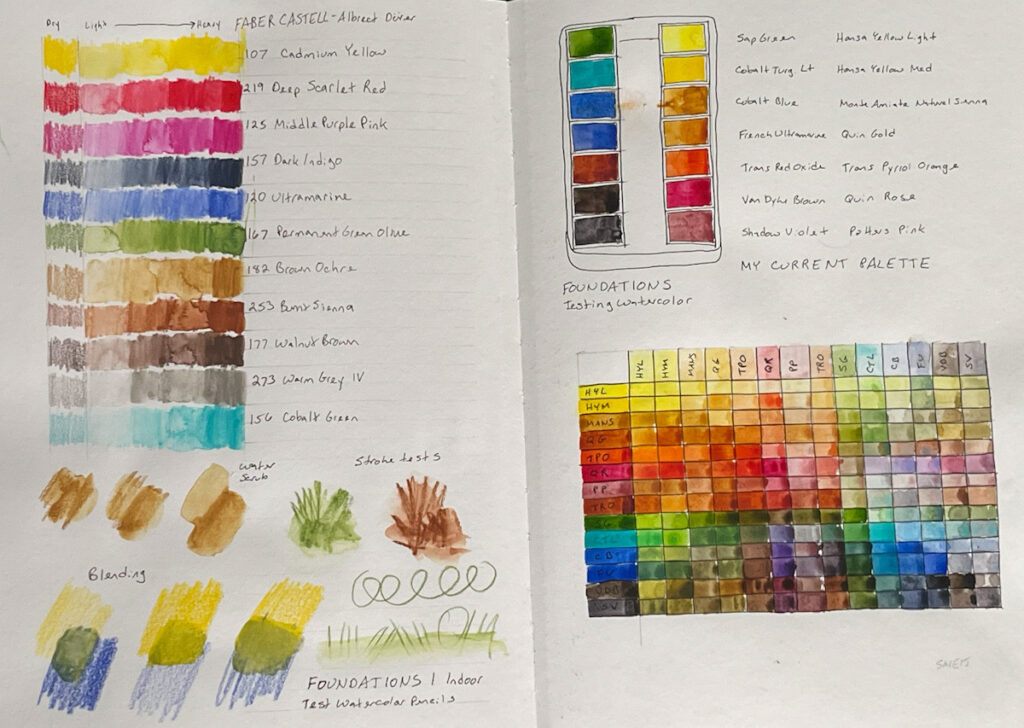 Dry Light Heavy FABER CASTELL-Albrect Dürer
107 Cadmium Yellow
219 Deep Scarlet Red
125 Middle Purple Pink
157 Dark Indigo
120 Ultramarine
167 Permanent Green Olive
182 Brown Ochre
253 Burnt Sienna
177 Walnut Brown
273 Warm Grey IV
156 Cobalt Green
Water
Scrub
Stroke tests
Blending
FOUNDATIONS 1 Indoor
Test Watercolor Pencils
Sap Green Hansa Yellow Light
Cobalt Turq. Lt Hansa Yellow Med
Cobalt Blue Monte Amiata Natural Sienna
French Ultramarine Quin Gold
Trans Red Oxide Trans Pyrrol Orange
Van Dyke Brown Quin Rose
Shadow Violet Potters Pink
MY CURRENT PALETTE
FOUNDATIONS
Testing Watercolor
HYL HYM MANS QG TPO QR PP TRO SG CTL CB FU VDB SV
HYL
HYM
MANS
QG
TPO
QR
PP
TRO
SG
CTL
CB
FU
VDB
SV